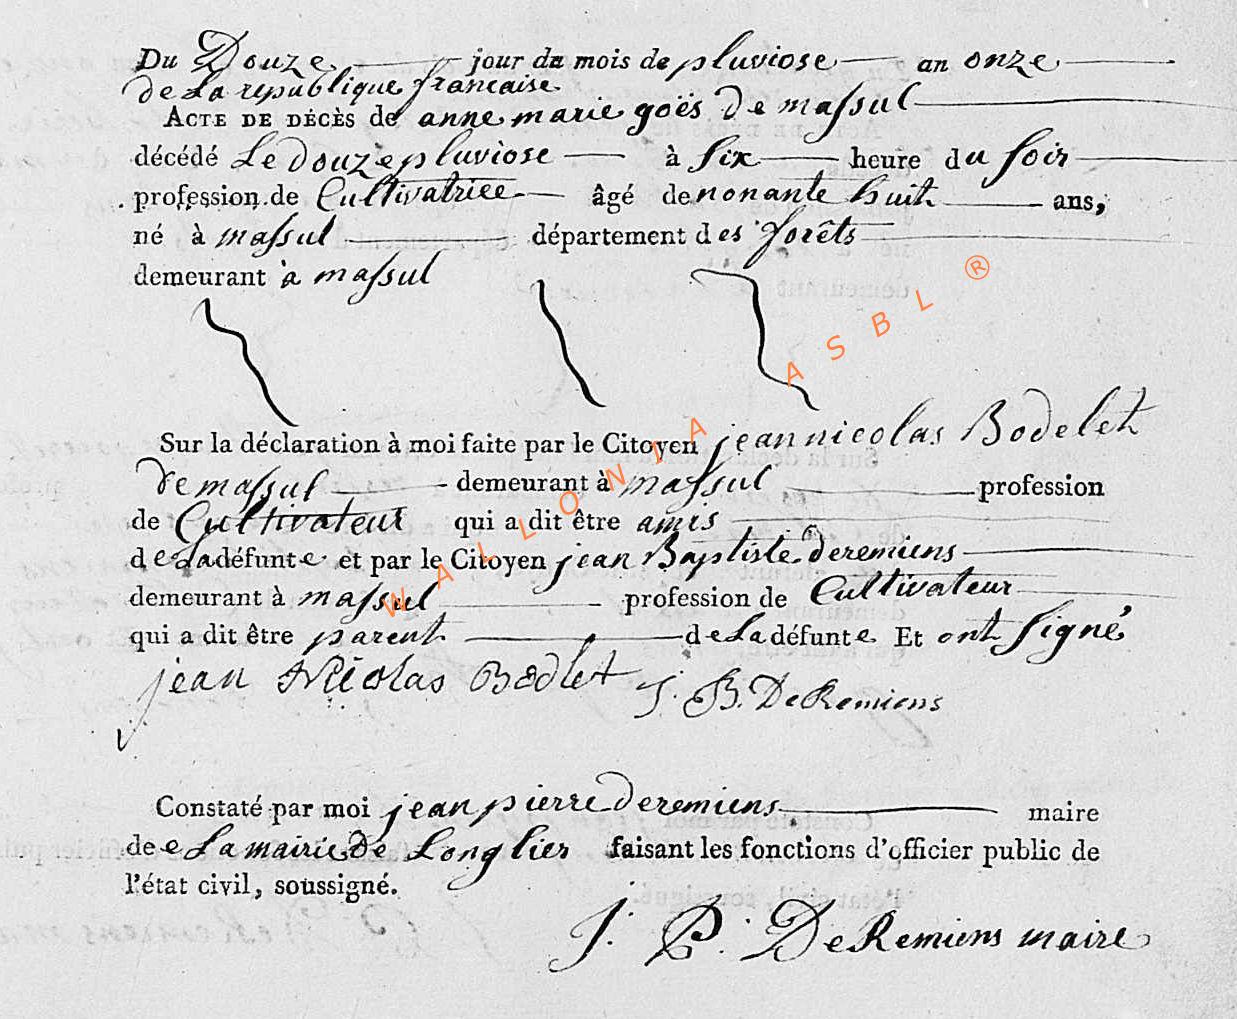 Du Douze jour du mois de pluviose an onze
de La republique francaise
ACTE DE DÉCÈS de anne marie goës De massul
décédé Le douze pluviose à six heure du soir
profession de Cultivatrice âgé de nonante huit ans,
né à massul département des forêts
demeurant à massul
Sur la déclaration à moi faite par le Citoyen jean nicolas Bodelet
De massul demeurant à massul profession
de Cultivateur qui a dit être amis
de La défunte et par le Citoyen jean Baptiste deremiens
demeurant à massul profession de Cultivateur
qui a dit être parent de La défunte Et ont signé
jean Nicolas Bodlet J. B. DeRemiens
Constaté par moi jean pierre Deremiens maire
de e La mairie De Longlier faisant les fonctions d'officier public de
l'état civil, soussigné.
J. P. DeRemiens maire
WALLONIA ASBL ®